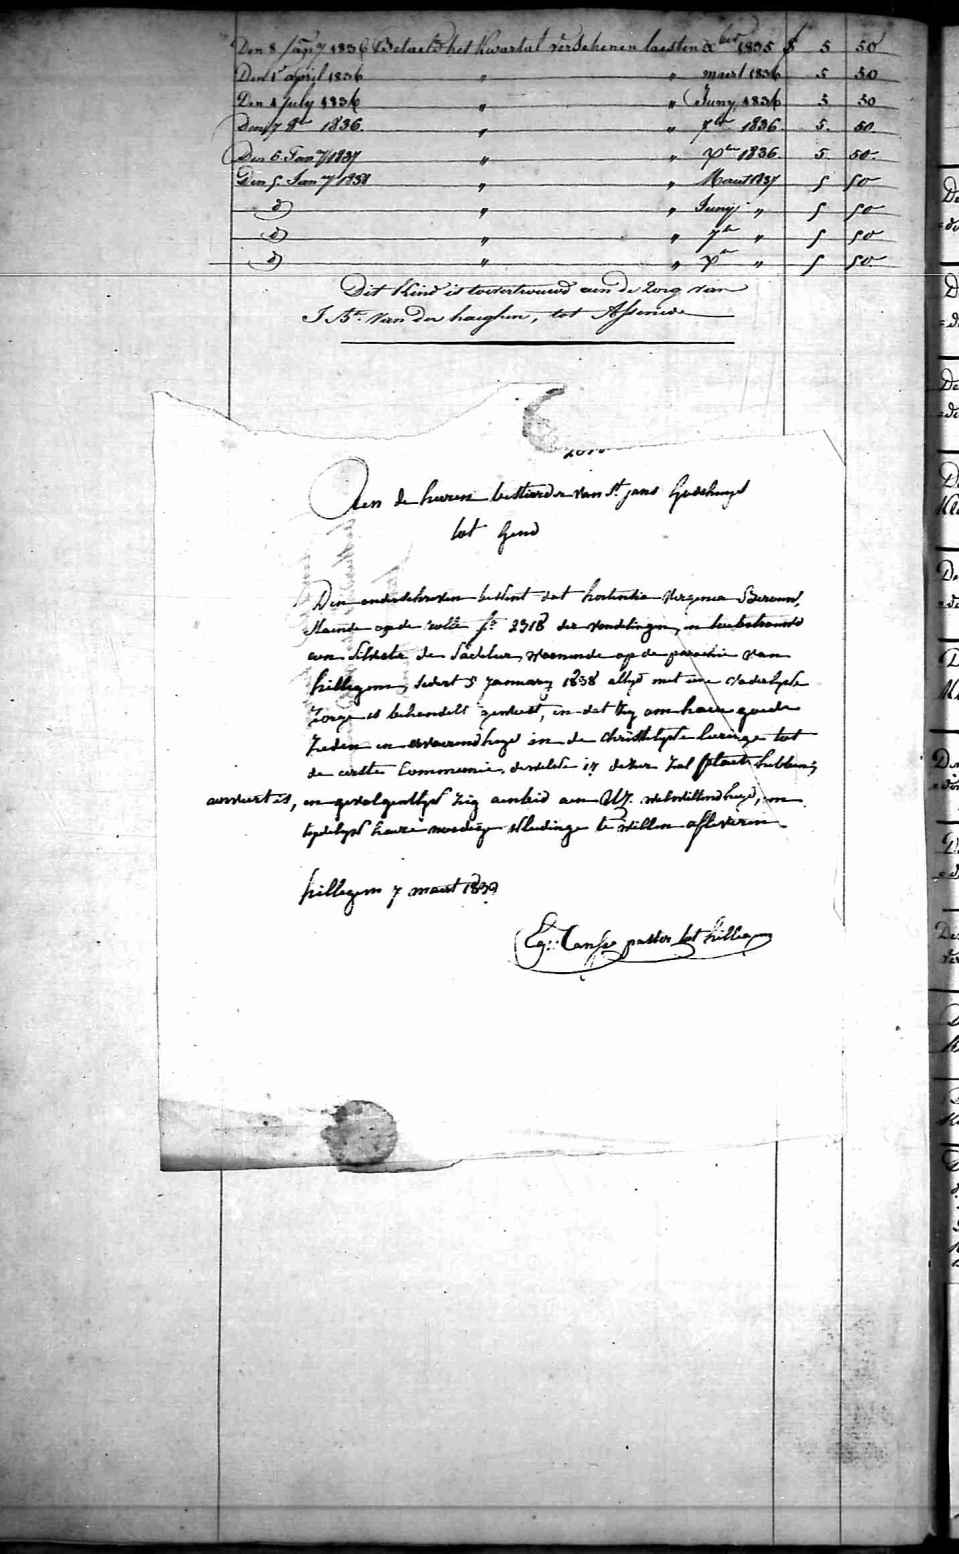 Den 8 Jan.y 1836 Betaeld het kwartal verschenen laesten xber 1835 f 5 50
Den 1 april 1836 " " maert 1836 5 50
Den 4 July 1836 " " Juny 1836 5 50
Den 7 8re 1836. " " 7bre 1836 5. 50.
Den 6 Jan.y 1837 " " xbre 1836. 5 50.
Den 5 Jan.y 1838 " " Maert 1837 5 50
d° " " Juny " 5 50
d° " " 7bre " 5 50
d° " " xbre " 5 50.
Dit kind is toevertrouwd aen de zorg van
J Bte Van der haeghen, tot Assenede
Aen de heeren bestierders van St jans Godshuys
tot Gend
Den onderschreven bekent dat hortentia Virginea
staende op de rolle f° 2318 der vondelingen, en
aen de Sadeleer, woonende op de parochie van
hillegem, sedert 5 January 1838 altyd met eene vaderlyke
zorge is behandelt geweest, en dat zy om haere goede
zeden en in de christelyke leeringe tot
de eerste Communie, dewelke 17 dezer zal plaets hebben,
aenveert is, en gevolgentlyk zig aenbied aen UE. welwillendheyd, om
tydelyk haere noodige kledinge te willen afleveren
hillegem 7 maert 1839
pastor tot hillegem